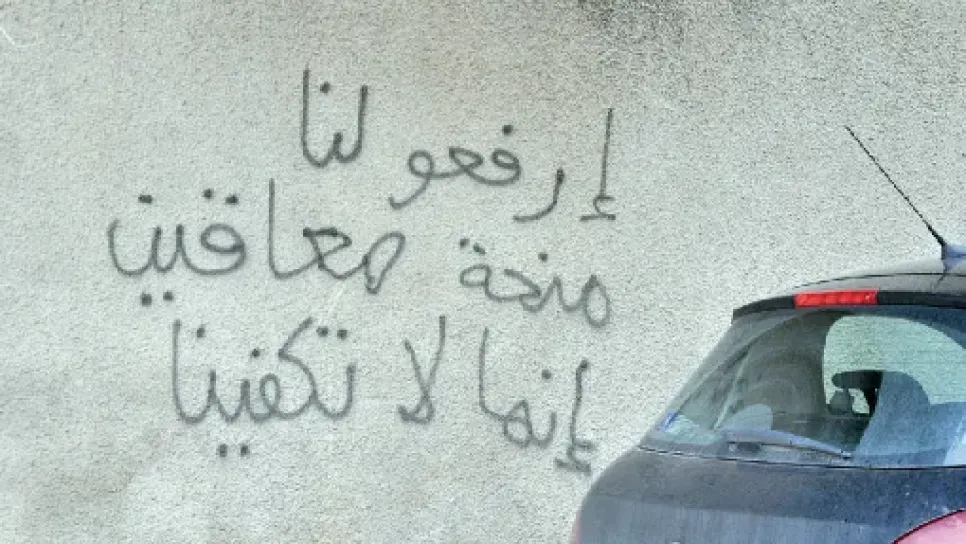 إرفعو لنا
منحة معاقين
إنما لا تكفينا